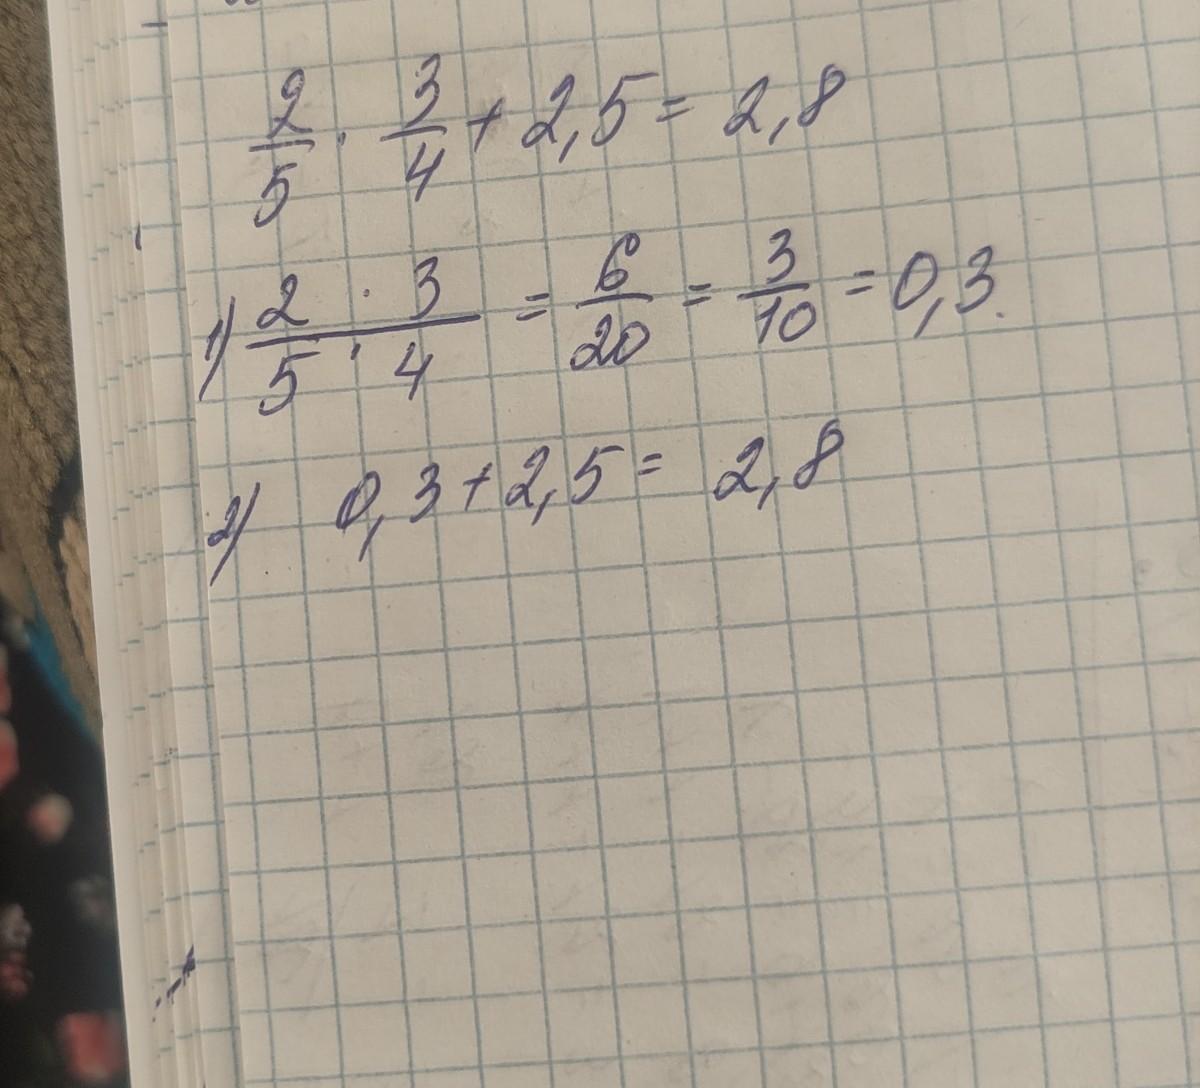 2/5 · 3/4 + 2,5 = 2,8
1) 2 · 3 / 5 · 4 = 6/20 = 3/10 = 0,3.
2) 0,3 + 2,5 = 2,8